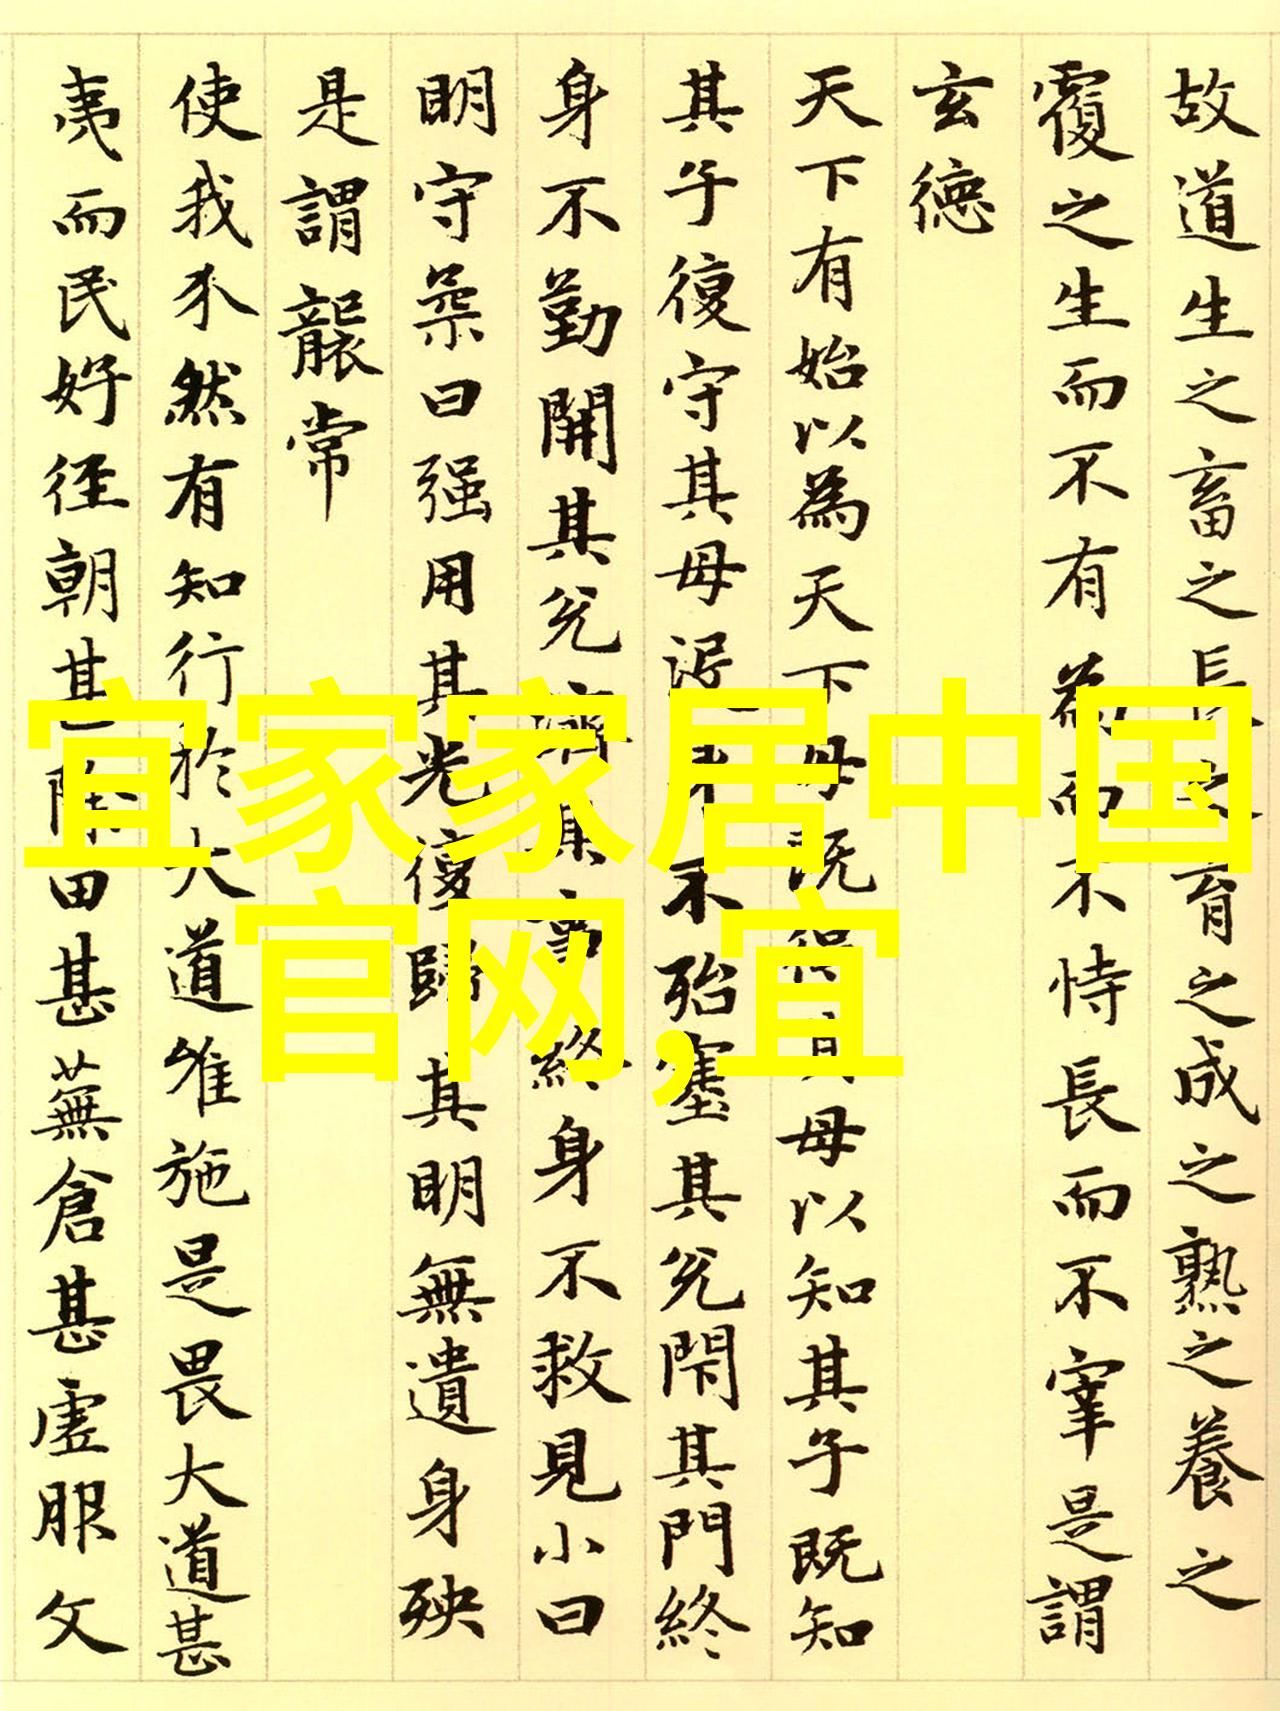 故道生之畜之長之育之成之熟之養之
覆之生而不有為而不恃長而不宰是謂
玄德
天下有始以為天下母既得其母以知其子既知
其子復守其母沒身不殆塞其兊閇其門終
身不勤開其兊濟其事終身不救見小曰
明守柔曰强用其光復歸其明無遺身殃
是謂襲常
使我介然有知行於大道唯施是畏大道甚
夷而民好徑朝甚除田甚蕪倉甚虛服文
宜家家居中国
官网,宜